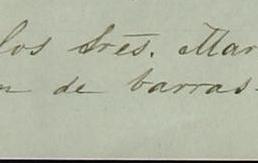 los Srēs. Mar
n de barras.